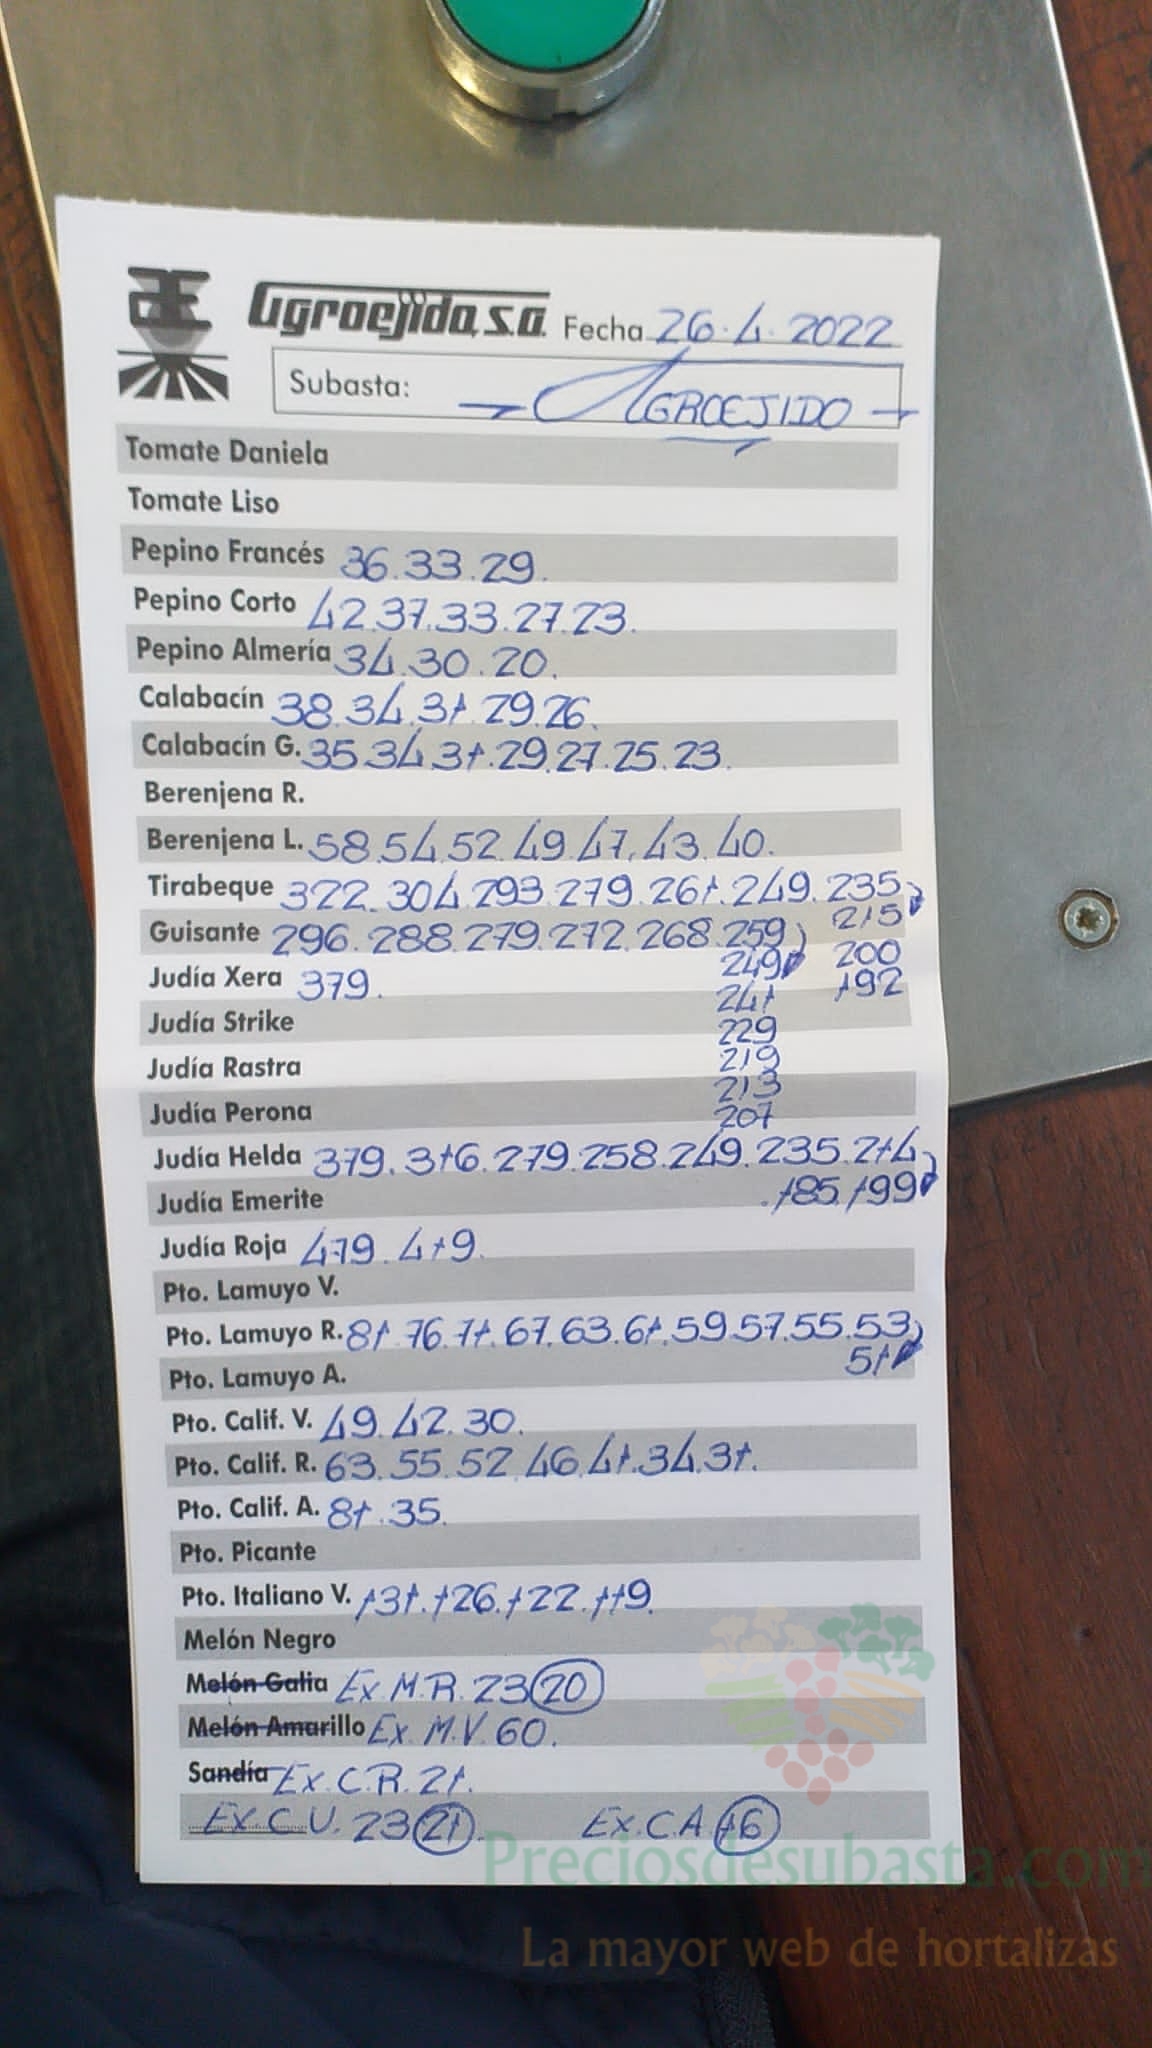 Agroejido, S.A. Fecha 26.4.2022
Subasta: AGROEJIDO
Tomate Daniela
Tomate Liso
Pepino Francés 36.33.29.
Pepino Corto 42.37.33.27.23.
Pepino Almería 34.30.20.
Calabacín 38.34.31.29.26.
Calabacín G. 35.34.31.29.27.25.23.
Berenjena R.
Berenjena L. 58.54.52.49.47.43.40.
Tirabeque 322.304.293.279.261.249.235
215
Guisante 296.288.279.272.268.259
249 200
Judía Xera 379. 192
241
Judía Strike 229
Judía Rastra 219
213
Judía Perona 207
Judía Helda 379.316.279.258.249.235.214
Judía Emerite .185.199
Judía Roja 479.419.
Pto. Lamuyo V.
Pto. Lamuyo R. 81.76.71.67.63.61.59.57.55.53
51
Pto. Lamuyo A.
Pto. Calif. V. 49.42.30.
Pto. Calif. R. 63.55.52.46.41.34.31.
Pto. Calif. A. 81.35.
Pto. Picante
Pto. Italiano V. 131.126.122.119.
Melón Negro
Melón Galia Ex.M.R. 23 20
Melón Amarillo Ex.M.V. 60.
Sandía Ex.C.R. 21.
Ex.C.U. 23 21. Ex.C.A 16
Preciosdesubasta.com
La mayor web de hortalizas